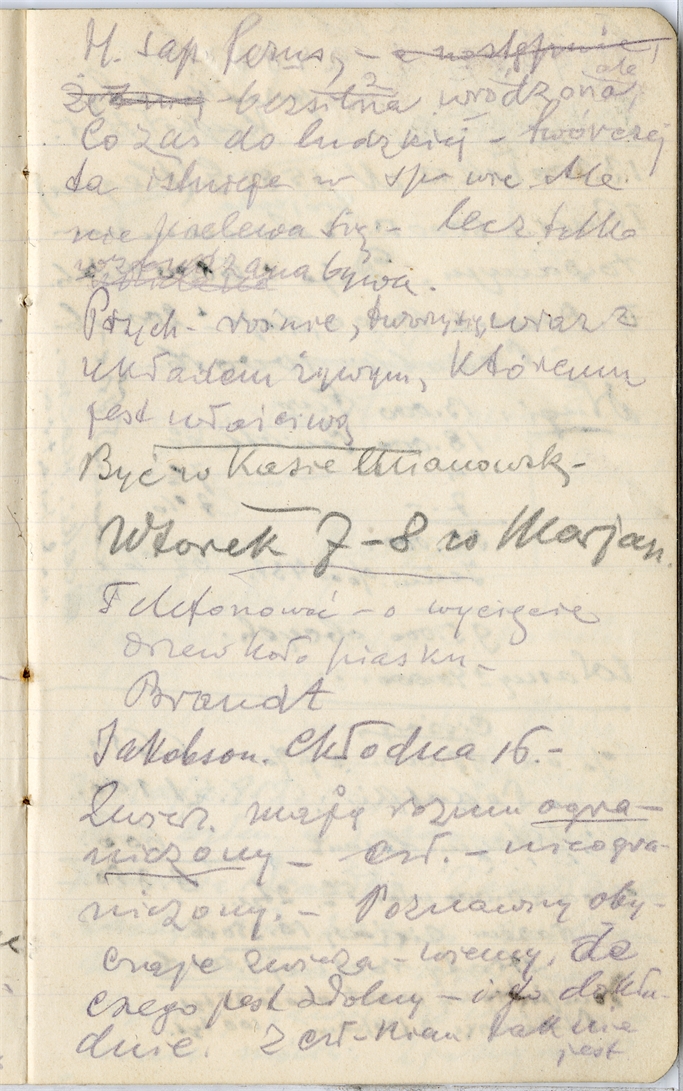 H. sap. ferus, –
bezsilna wrodzona, ale
Co zaś do ludzkiej – twórczej
ta istnieje w
nie przelewa się – lecz tylko
bywa.
Psych. rośnie, tworzy się wraz z
układem żywym, któremu
jest właściwą
Być w Kasie Mianowsk.
Wtorek 7–8 w Marjan.
Telefonować – o wycięcie
drzew koło piasku –
Brandt
Jakobson. Chłodna 16. –
Zwierz. mają rozum ogra-
niczony – czł. – nieogra-
niczony. – Poznawszy oby-
czaje zwierza – wiemy, do
czego jest zdolny – i to dokła-
dnie. Z czł-kiem tak nie
jest